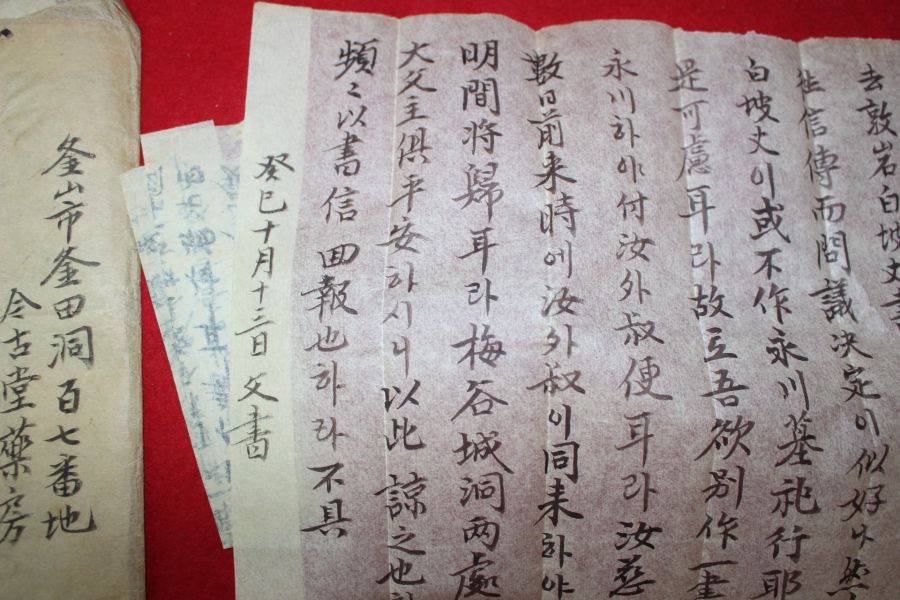 去敦岩白坡丈書
信傳而問議決定이似好나然
白坡丈이或不作永川墓祀行耶
是可慮耳라故로吾欲別作一書
永川하야付汝外叔便耳라汝慈
數日前来時에汝外叔이同来하야
明間將歸耳라梅谷城洞两處
大父主俱平安하시니以此諒之也하
頻〻以書信回報也하라不具
癸巳十月十三日父書
釜山市釜田洞百七番地
今古堂藥房